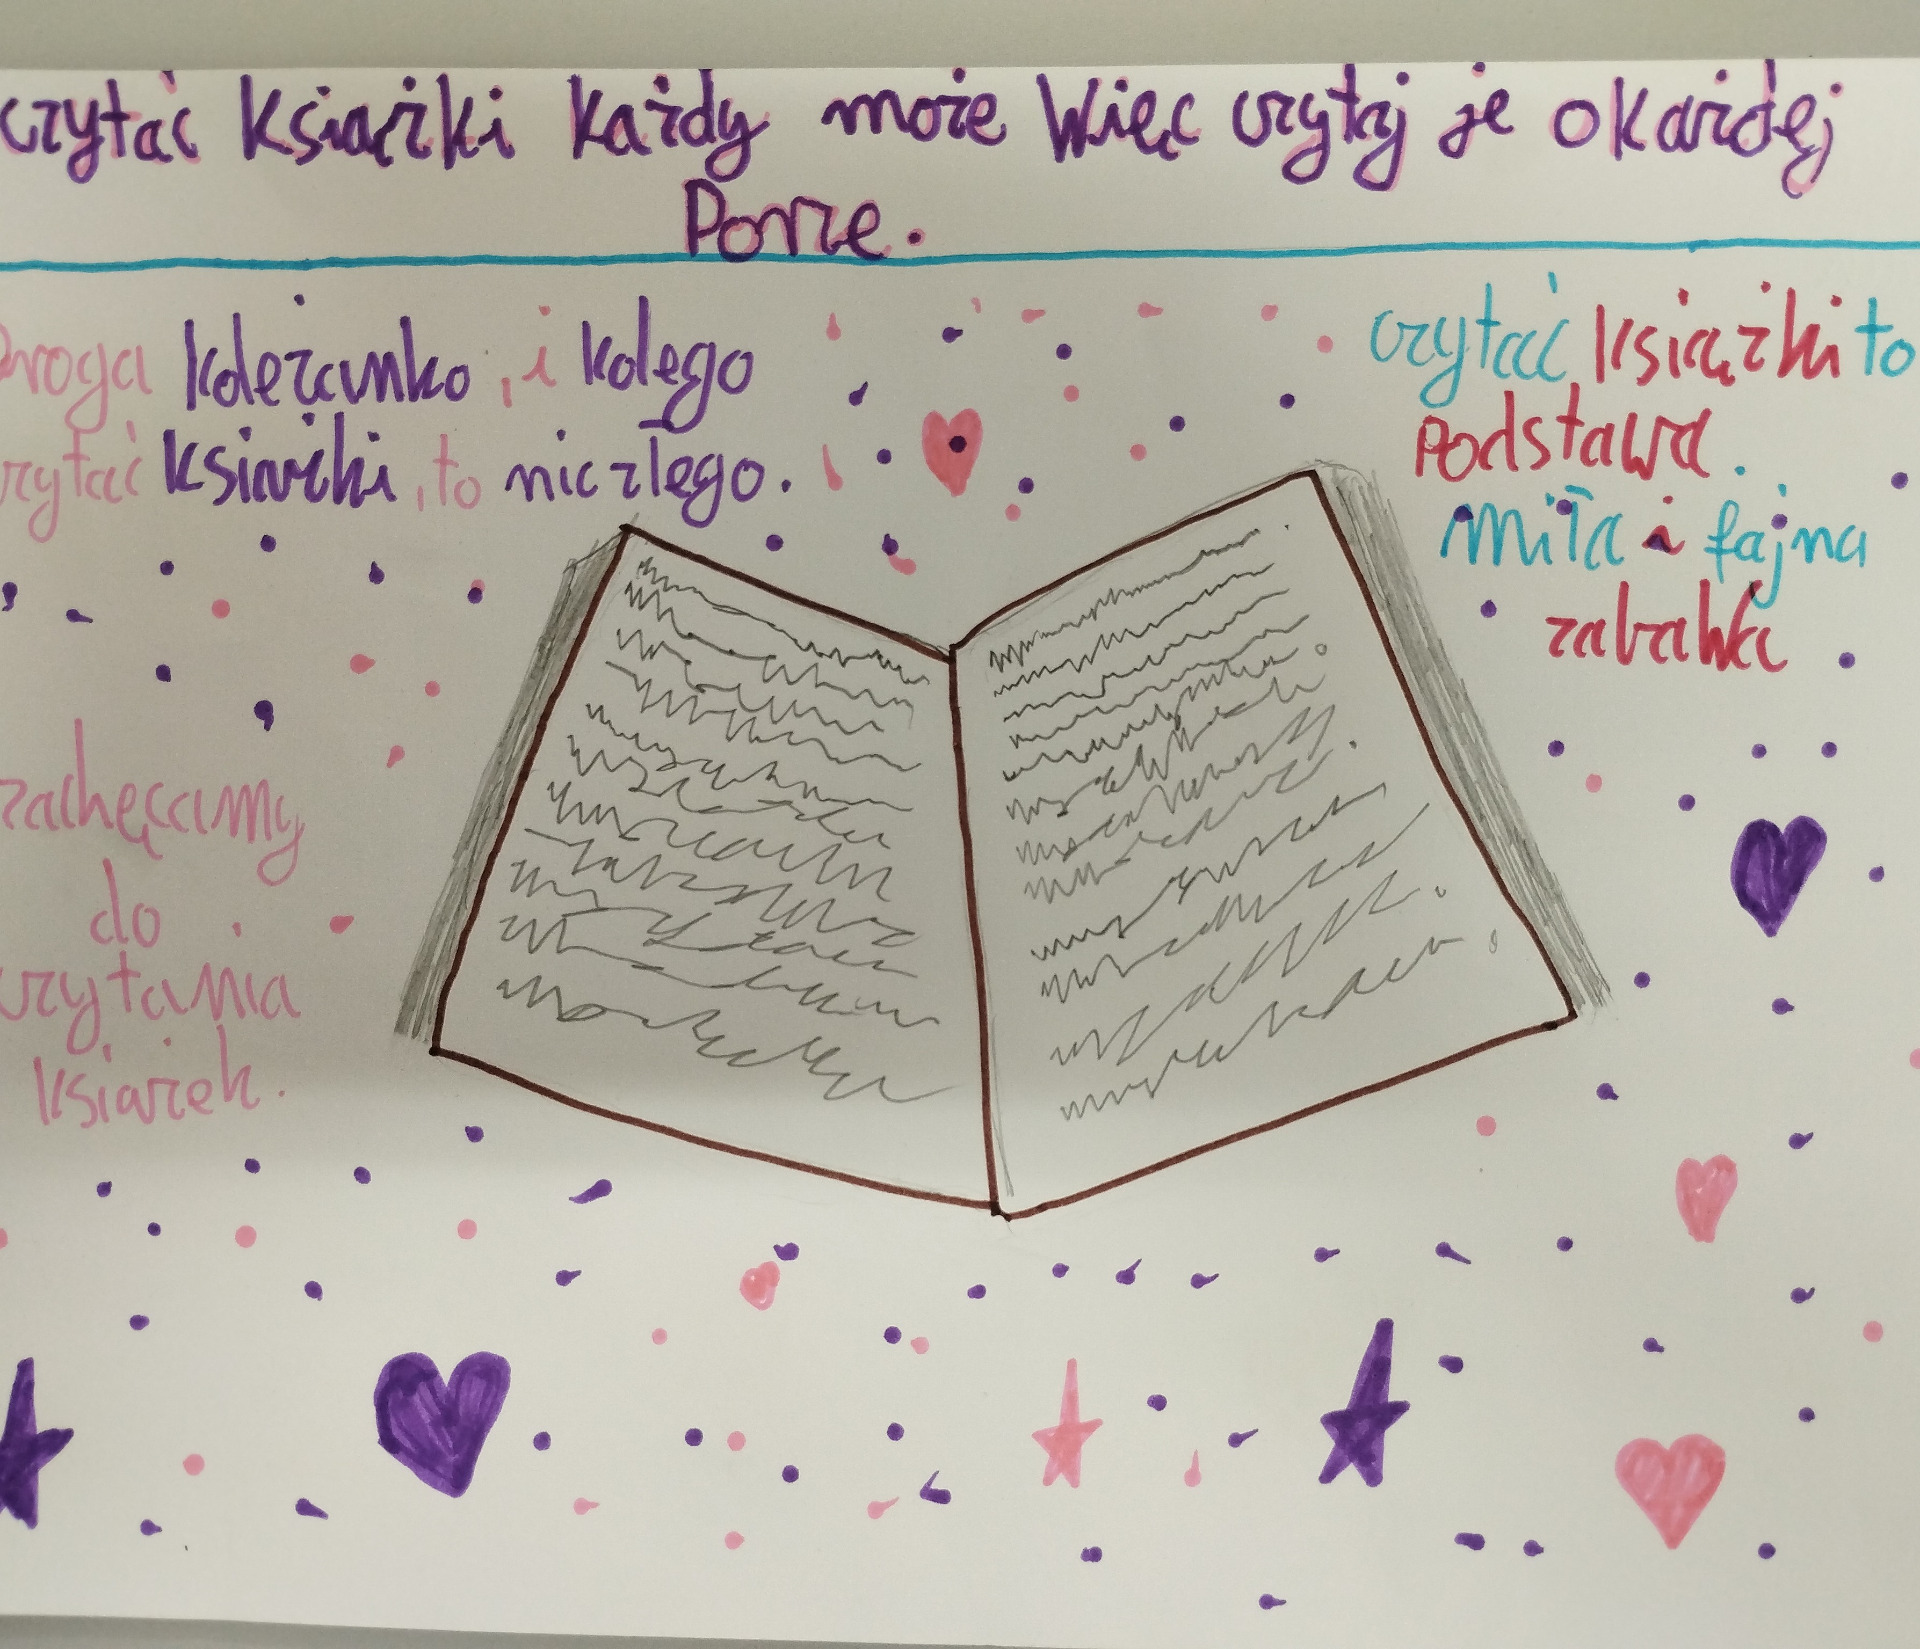 czytać Książki Każdy może Więc czytaj je okażdęj
Porze.
Droga koleżanko, i kolego
czytać Książki, to nic złego.
czytać książki to
Podstawa.
Miła i fajna
zabawka
zachęcamy
do
czytania
książek.